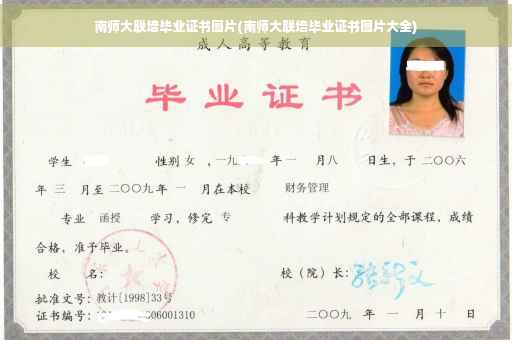 南师大联培毕业证书图片(南师大联培毕业证书图片大全)
成人高等教育
毕业证书
学生 性别 女 ,一九 年 一 月八 日生，于 二〇〇六
年 三 月至 二〇〇九年 一 月在本校 财务管理
专业 函授 学习，修完 专 科教学计划规定的全部课程，成绩
合格，准予毕业。
校 名： 校（院）长：
批准文号：教计[1998]33号
证书编号： 06001310 二〇〇九 年 一 月 十 日